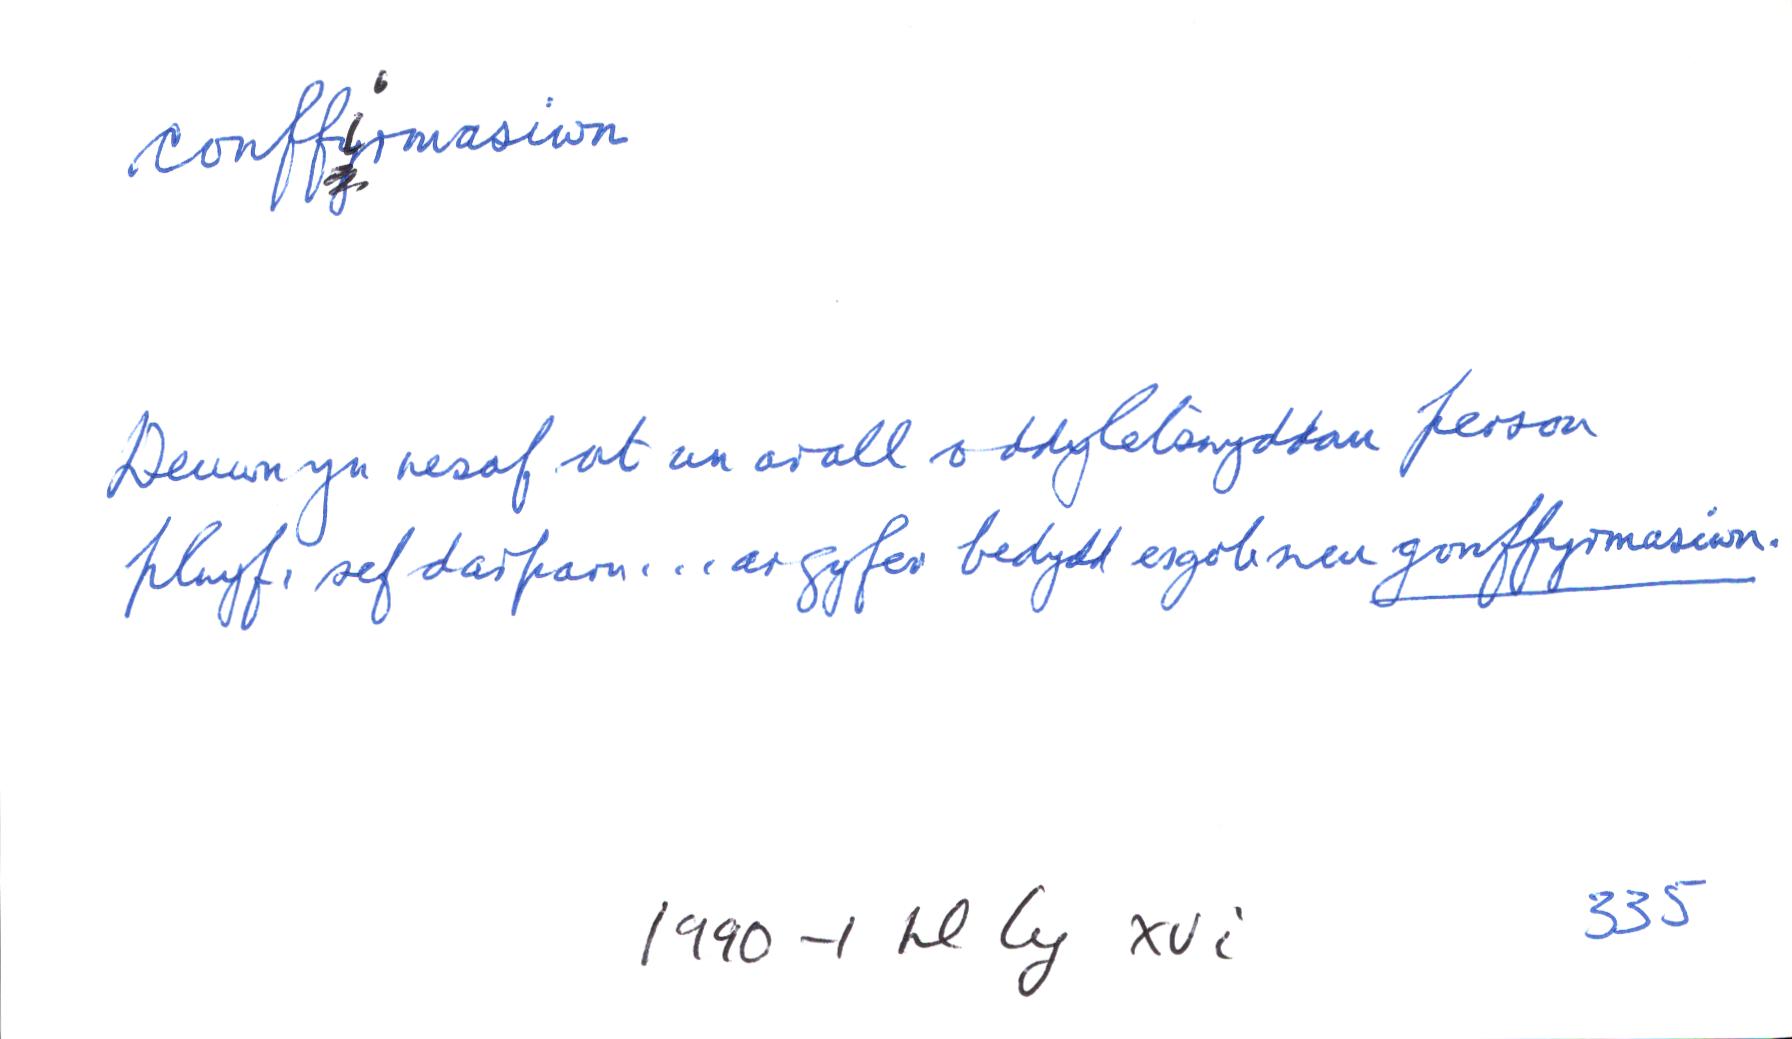 conffirmasiwn
Deuwn yn nesaf at un arall o ddyletswyddau person
plwyf, sef darparu... ar gyfer bedydd esgob neu gonffyrmasiwn.
1990-1 LlC xvi
335